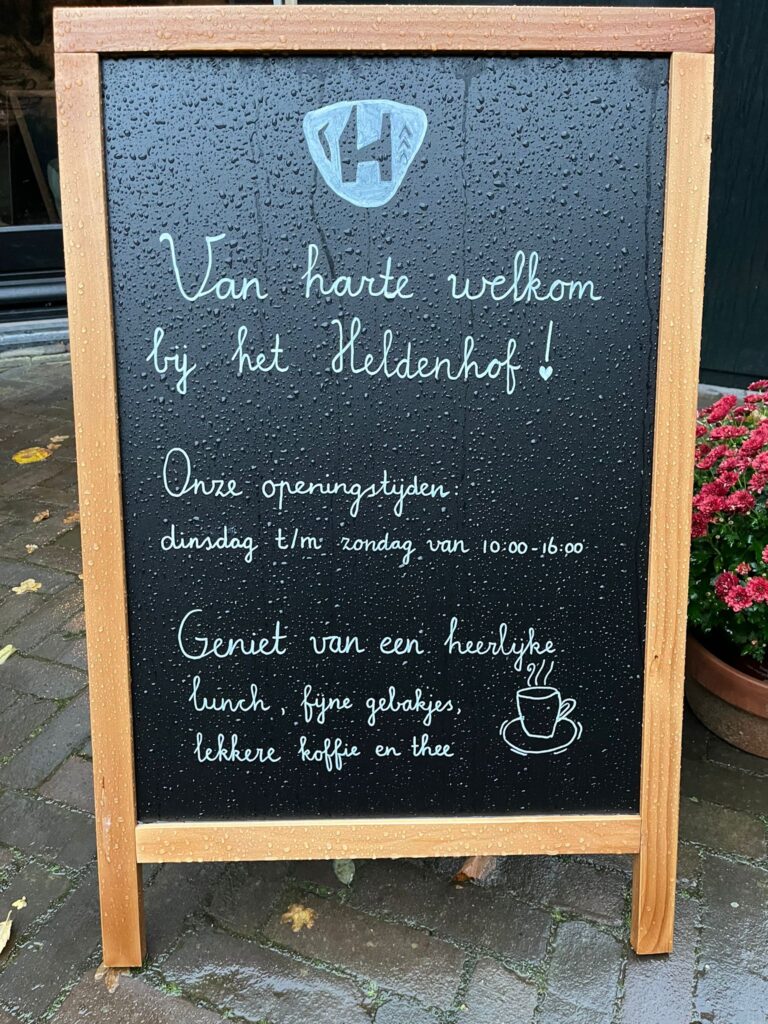 H
Van harte welkom
bij het Heldenhof!
Onze openingstijden:
dinsdag t/m zondag van 10:00-16:00
Geniet van een heerlijke
lunch, fijne gebakjes,
lekkere koffie en thee